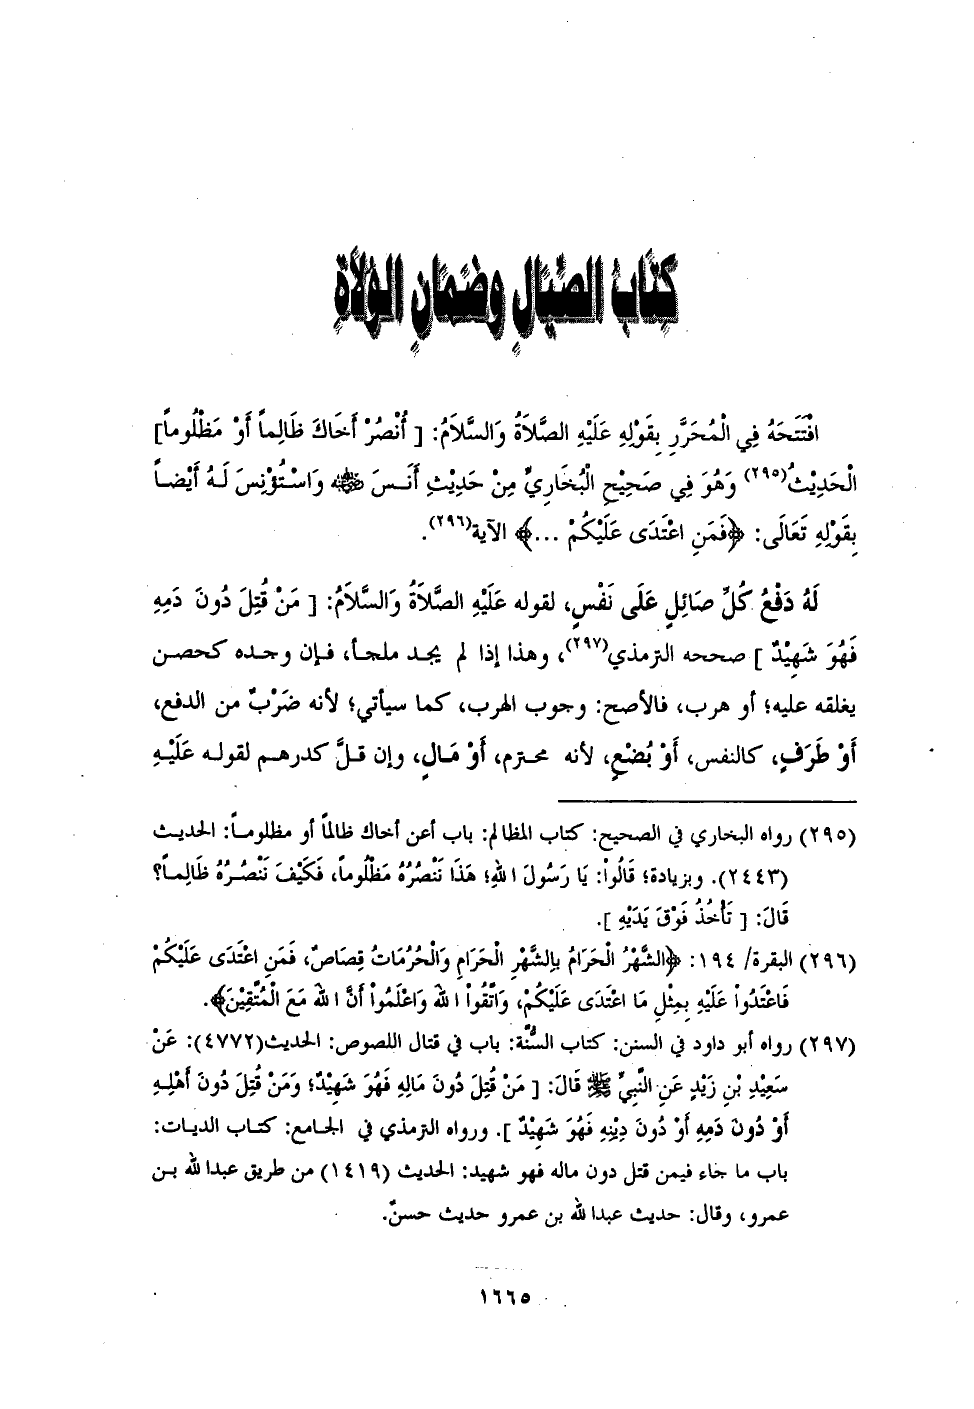 كِتَابُ الصِّيَالِ وَضَمَانِ الوُلاَةِ
افْتَتَحَهُ فِي الْمُحَرَّرِ بِقَوْلِهِ عَلَيْهِ الصَّلاَةُ وَالسَّلاَمُ: [ أُنْصُرْ أَخَاكَ ظَالِماً أَوْ مَظْلُوماً]
الْحَدِيْثُ(٢٩٥) وَهُوَ فِي صَحِيْحِ الْبُخَارِيِّ مِنْ حَدِيْثِ أَنَسَ ﷺ وَاسْتُؤْنِسَ لَهُ أَيْضاً
بِقَوْلِهِ تَعَالَى: ﴿فَمَنِ اعْتَدَى عَلَيْكُمْ ...﴾ الآية(٢٩٦).
لَهُ دَفْعُ كُلِّ صَائِلٍ عَلَى نَفْسٍ، لقوله عَلَيْهِ الصَّلاَةُ وَالسَّلاَمُ: [ مَنْ قُتِلَ دُونَ دَمِهِ
فَهُوَ شَهِيْدٌ ] صححه الترمذي(٢٩٧)، وهذا إذا لم يجد ملجأ، فإن وجده كحصن
يغلقه عليه؛ أو هرب، فالأصح: وجوب الهرب، كما سيأتي؛ لأنه ضَرْبٌ من الدفع،
أَوْ طَرَفٍ، كالنفس، أَوْ بُضْعٍ، لأنه محترم، أَوْ مَالٍ، وإن قلَّ كدرهم لقوله عَلَيْهِ
(٢٩٥) رواه البخاري في الصحيح: كتاب المظالم: باب أعن أخاك ظالماً أو مظلوماً: الحديث
(٢٤٤٣). وبزيادة؛ قَالُواْ: يَا رَسُولَ اللهِ؛ هَذَا نَنْصُرُهُ مَظْلُوماً، فَكَيْفَ نَنْصُرُهُ ظَالِماً؟
قَالَ: [ تَأْخُذُ فَوْقَ يَدَيْهِ ].
(٢٩٦) البقرة/ ١٩٤: ﴿الشَّهْرُ الْحَرَامُ بِالشَّهْرِ الْحَرَامِ وَالْحُرُمَاتُ قِصَاصٌ، فَمَنِ اعْتَدَى عَلَيْكُمْ
فَاعْتَدُواْ عَلَيْهِ بِمِثْلِ مَا اعْتَدَى عَلَيْكُمْ، وَاتَّقُواْ اللهَ وَاعْلَمُواْ أَنَّ اللهَ مَعَ الْمُتَّقِيْنَ﴾.
(٢٩٧) رواه أبو داود في السنن: كتاب السُّنَّة: باب في قتال اللصوص: الحديث(٤٧٧٢): عَنْ
سَعِيْدِ بْنِ زَيْدٍ عَنِ النَّبِيِّ ﷺ قَالَ: [ مَنْ قُتِلَ دُونَ مَالِهِ فَهُوَ شَهِيْدٌ؛ وَمَنْ قُتِلَ دُونَ أَهْلِهِ
أَوْ دُونَ دَمِهِ أَوْ دُونَ دِيْنِهِ فَهُوَ شَهِيْدٌ ]. ورواه الترمذي في الجامع: كتاب الديات:
باب ما جاء فيمن قتل دون ماله فهو شهيد: الحديث (١٤١٩) من طريق عبدالله بن
عمرو، وقال: حديث عبدالله بن عمرو حديث حسنٌ.
١٦٦٥